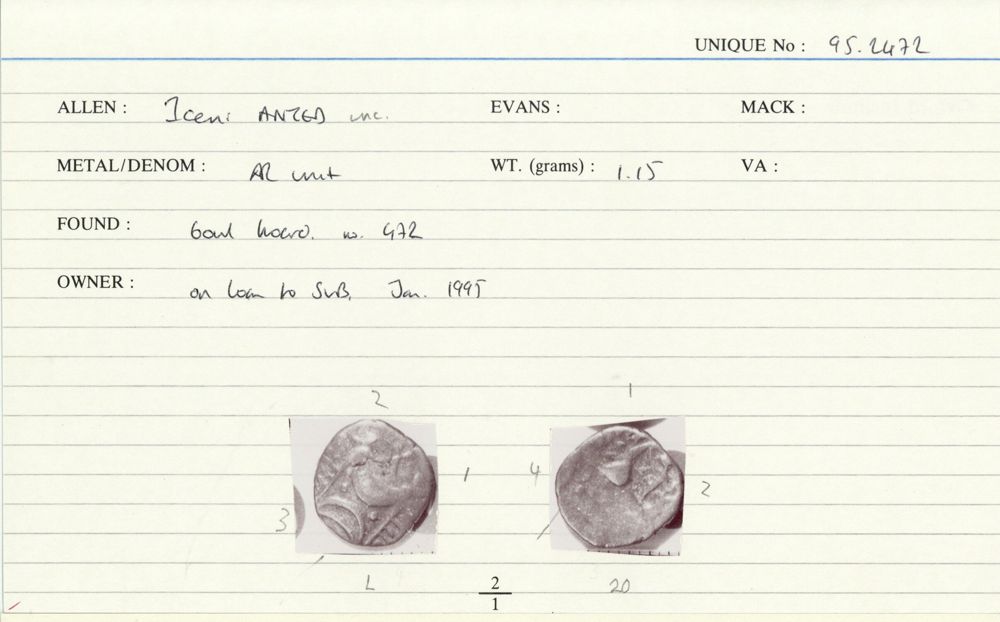 UNIQUE No : 95.2472
ALLEN : Iceni ANTED unc. EVANS : MACK :
METAL/DENOM : AR unit WT. (grams) : 1.15 VA :
FOUND : hoard. no. 472
OWNER : on loan to Jan. 1995
2 1
1 4 2
3
L 2/1 20